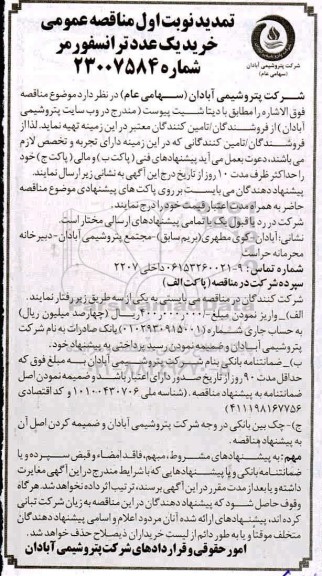 تمدید نوبت اول مناقصه عمومی
خرید یک عدد ترانسفورمر
شماره ۲۳۰۰۷۵۸۴
شرکت پتروشیمی آبادان
(سهامی عام)
شرکت پتروشیمی آبادان (سهامی عام) در نظر دارد موضوع مناقصه
فوق الاشاره را مطابق با دیتا شیت پیوست (مندرج در وب سایت پتروشیمی
آبادان) از فروشندگان/تامین کنندگان معتبر در این زمینه تهیه نماید. لذا از
فروشندگان/تامین کنندگانی که در این زمینه دارای تجربه و تخصص لازم
می باشند، دعوت بعمل می آید پیشنهادهای فنی (پاکت ب) و مالی (پاکت ج) خود
را حداکثر ظرف مدت ۱۰ روز از تاریخ درج این آگهی به نشانی زیر ارسال نمایند.
پیشنهاد دهندگان می بایست بر روی پاکت های پیشنهادی موضوع مناقصه
حاضر به همراه مدت اعتبار قیمت خود را درج نمایند.
شرکت در رد یا قبول یک یا تمامی پیشنهادهای ارسالی مختار است.
نشانی: آبادان-کوی مطهری (بریم سابق)-مجتمع پتروشیمی آبادان-دبیرخانه
محرمانه حراست
شماره تماس: ۹-۰۶۱۵۳۲۶۰۰۲۱ داخلی ۲۲۰۷
سپرده شرکت در مناقصه (پاکت الف)
شرکت کنندگان در مناقصه می بایستی به یکی از سه طریق زیر رفتار نمایند.
الف)_ واریز نمودن مبلغ -/۴۰۰,۰۰۰,۰۰۰ ریال (چهارصد میلیون ریال)
به حساب جاری شماره (۰۱۰۲۹۳۰۹۱۵۰۰۱) بانک صادرات به نام شرکت
پتروشیمی آبادان و ضمیمه نمودن رسید پرداختی به پیشنهاد خود.
ب)_ ضمانتنامه بانکی بنام شرکت پتروشیمی آبادان به مبلغ فوق که
حداقل مدت ۹۰ روز از تاریخ صدور دارای اعتبار باشد و ضمیمه نمودن اصل
ضمانتنامه به پیشنهاد مناقصه. (شناسه ملی ۱۰۱۰۰۴۳۰۷۰۶ و کد اقتصادی
۴۱۱۱۹۸۱۶۷۷۵۶)
ج)-چک بین بانکی در وجه شرکت پتروشیمی آبادان و ضمیمه کردن اصل آن
به پیشنهاد مناقصه.
مهم: به پیشنهادهای مشروط، مبهم، فاقد امضاء و فیش سپرده و یا
ضمانتنامه بانکی و یا پیشنهادهایی که با شرایط مندرج در این آگهی مغایرت
داشته و یا بعد از مدت مقرر در این آگهی برسند، ترتیب اثر داده نخواهد شد. هرگاه
وقوف حاصل شود که پیشنهاد دهندگان در این مناقصه به زیان شرکت تبانی
کرده اند، پیشنهادهای ارائه شده آنان مردود اعلام و اسامی پیشنهاد دهندگان
متخلف موقتاً و یا به طور دائم از لیست خریداران ذیصلاح حذف خواهد شد.
امور حقوقی و قراردادهای شرکت پتروشیمی آبادان